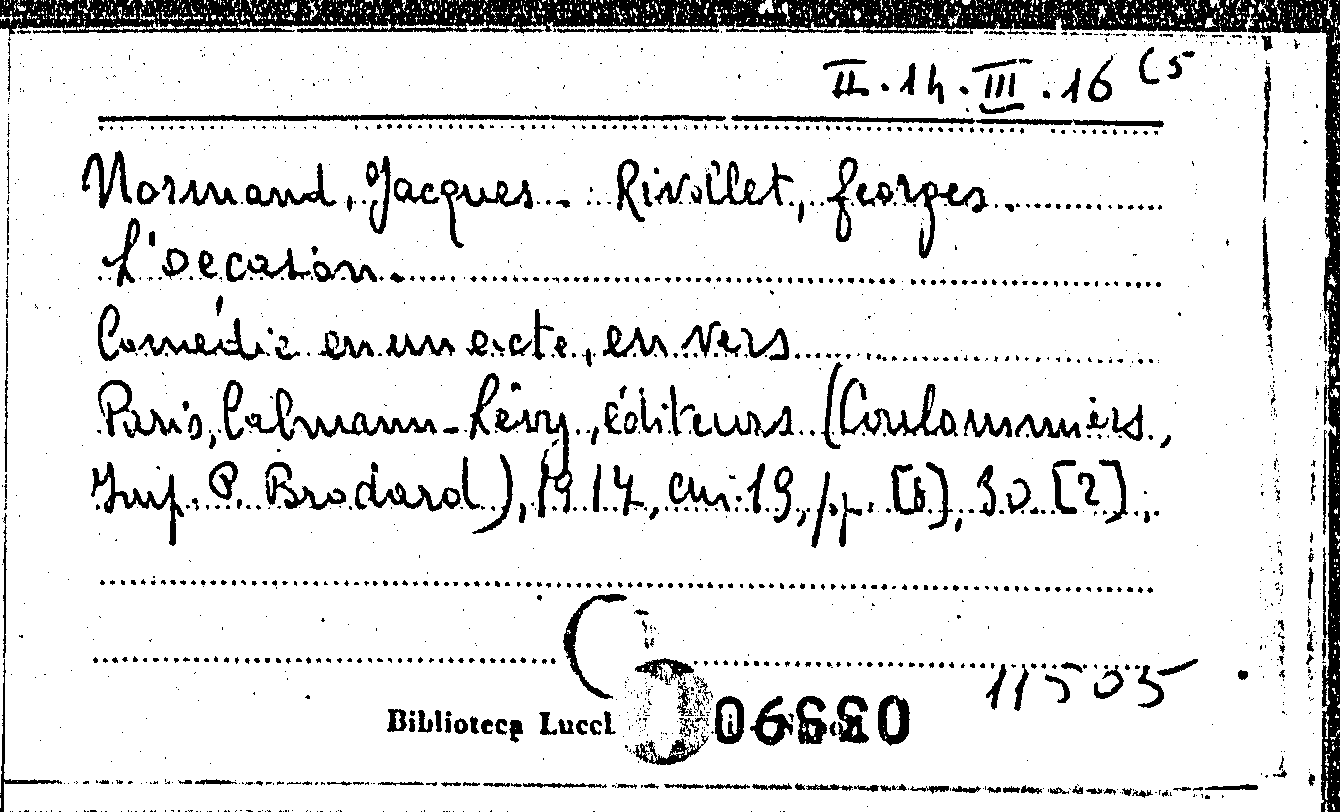 II.14.III.16 (5
Normand, Jacques - Rivollet, Georges.
L'occasion.
Comédie en un acte, en vers
Paris, Calmann-Lévy, éditeurs (Coulommiers,
Imp. P. Brodard), 1914, cm. 19, pp. [6], 30 [2].
11505
Biblioteca Lucchesi